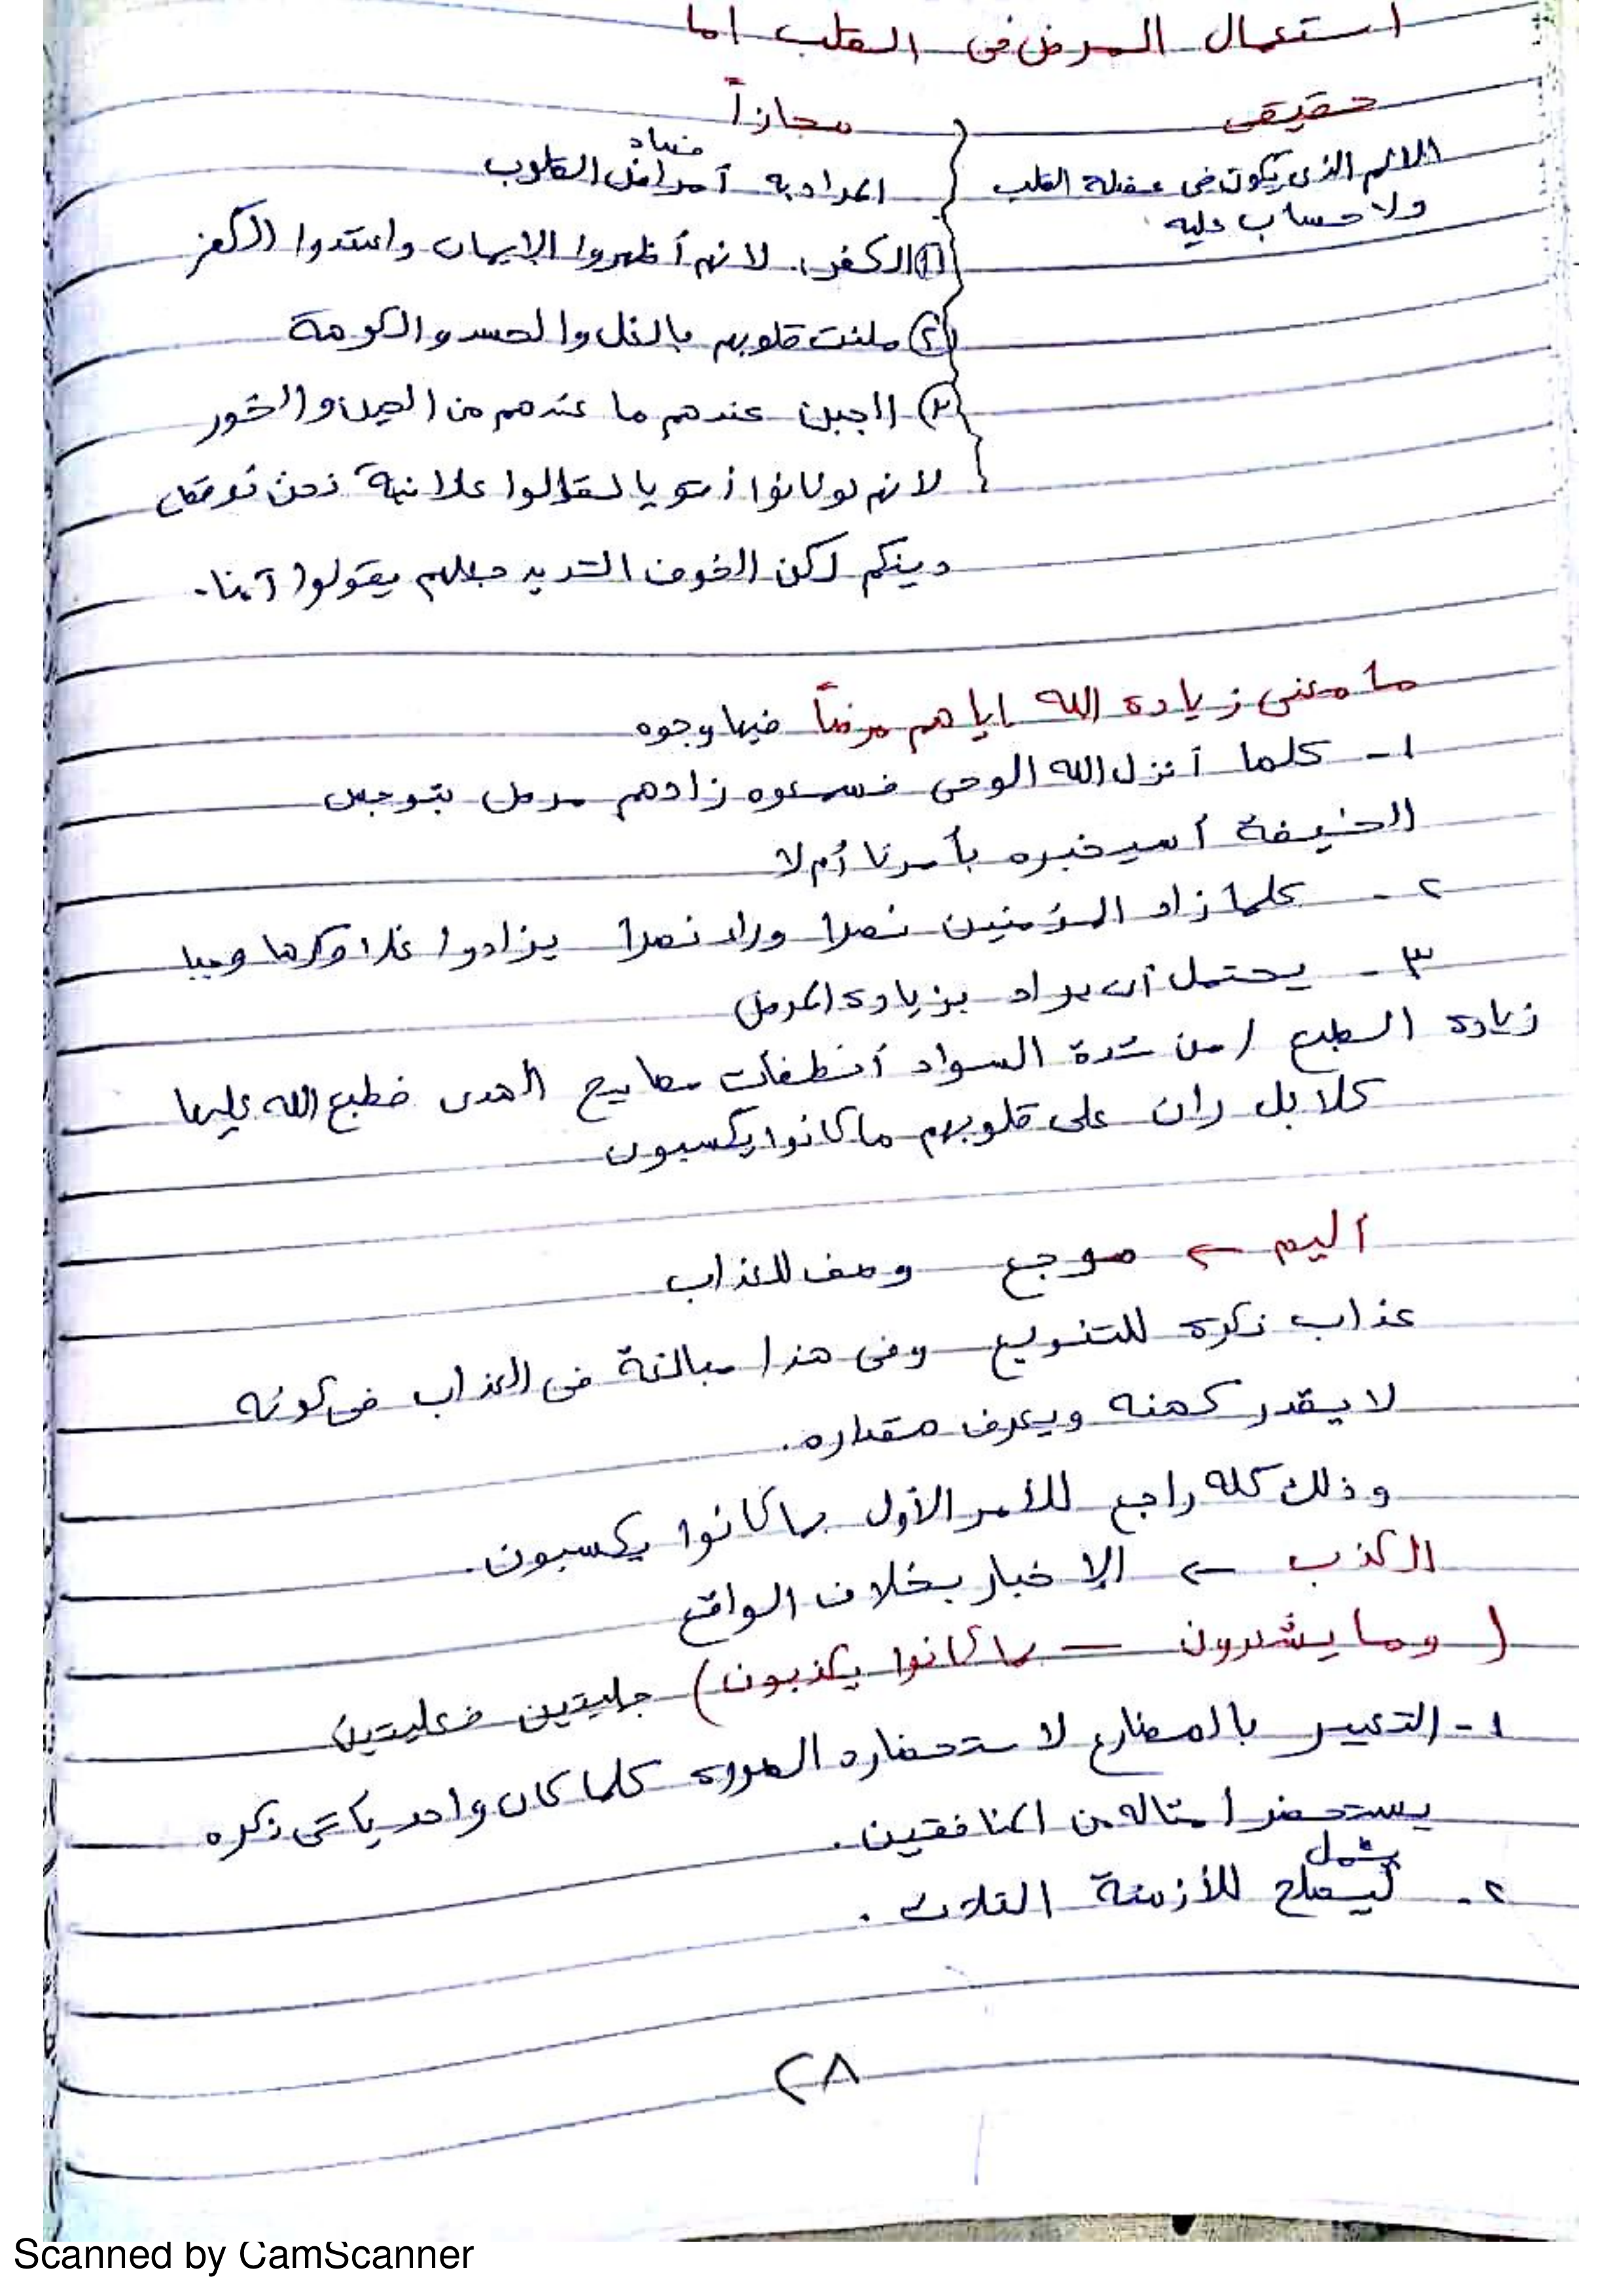 استعمال المرض فى القلب اما
حقيقى
الالم الذى يكون فى عضلة القلب
ولا حساب عليه
مجازاً
فساد
المراد به أمراض القلوب
① الكفر، لانهم أظهروا الإيمان واعتقدوا الكفر
② ملئت قلوبهم بالغل والحسد والكومة
③ الجبن عندهم ما عندهم من الجبن والخور
لانهم لو كانوا أقويا لقالوا علانية نحن نرفض
دينكم لكن الخوف الشديد جعلهم يقولوا آمنا.
ما معنى زيادة الله اياهم مرضاً فيها وجوه
١- كلما أنزل الله الوحى فسمعوه زادهم مرض بتوجس
الخيفة أسيخبره بأمرنا أم لا
٢- كلما زاد المؤمنين نصرا وراد نصرا يزادوا غلا وكرها
٣- يحتمل أن يراد بزيادة المرض
زيادة الطبع من شدة السواد أنطفأت مصابيح الهدى فطبع الله عليها
كلا بل ران على قلوبهم ما كانوا يكسبون
أليم ← موجع وصف للعذاب
عذاب نكرة للتنويع وفى هذا مبالغة فى العذاب فى كونه
لا يقدر كهنه ويعرف مقداره.
وذلك كله راجع للأمر الأول بما كانوا يكسبون.
الكذب ← الإخبار بخلاف الواقع
(وما يشعرون – بما كانوا يكذبون) جمليتين فعليتين
١- التعبير بالمضارع لاستحضاره الصورة كلما كان واحد يأتى ذكره
يستحضر امثاله من المنافقين.
يشمل
٢- ليصلح للأزمنة الثلاث.
٢٨
Scanned by CamScanner